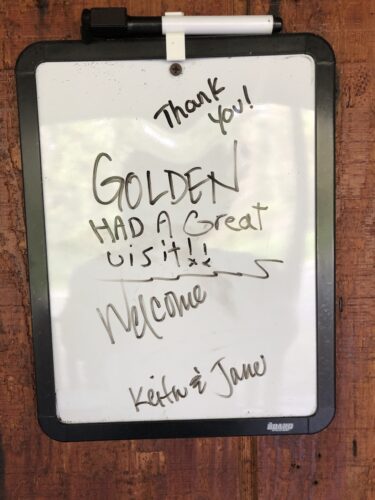 Thank
You!
GOLDEN
HAD A Great
visit!!
Welcome
Keith & Jane
BOARD